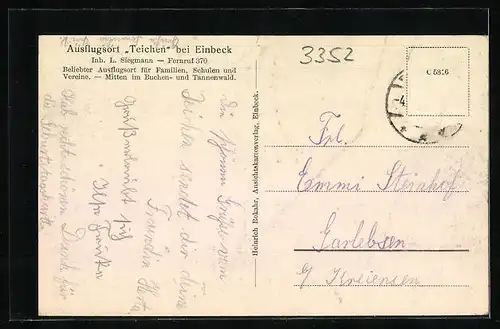 Ausflugsort „Teichen" bei Einbeck
Inh. L. Siegmann — Fernruf 370
Beliebter Ausflugsort für Familien, Schulen und
Vereine. — Mitten im Buchen- und Tannenwald.
3352
C 5826
Heinrich Rokahr, Ansichtskartenverlag, Einbeck.
Frl.
Emmi Steinhof
Garlebsen
b/ Kreiensen
Grüße vom
Teichen sendet dir deine
Freundin Herta
sich
Hab recht schönen Dank für
die Geburtstagskarte